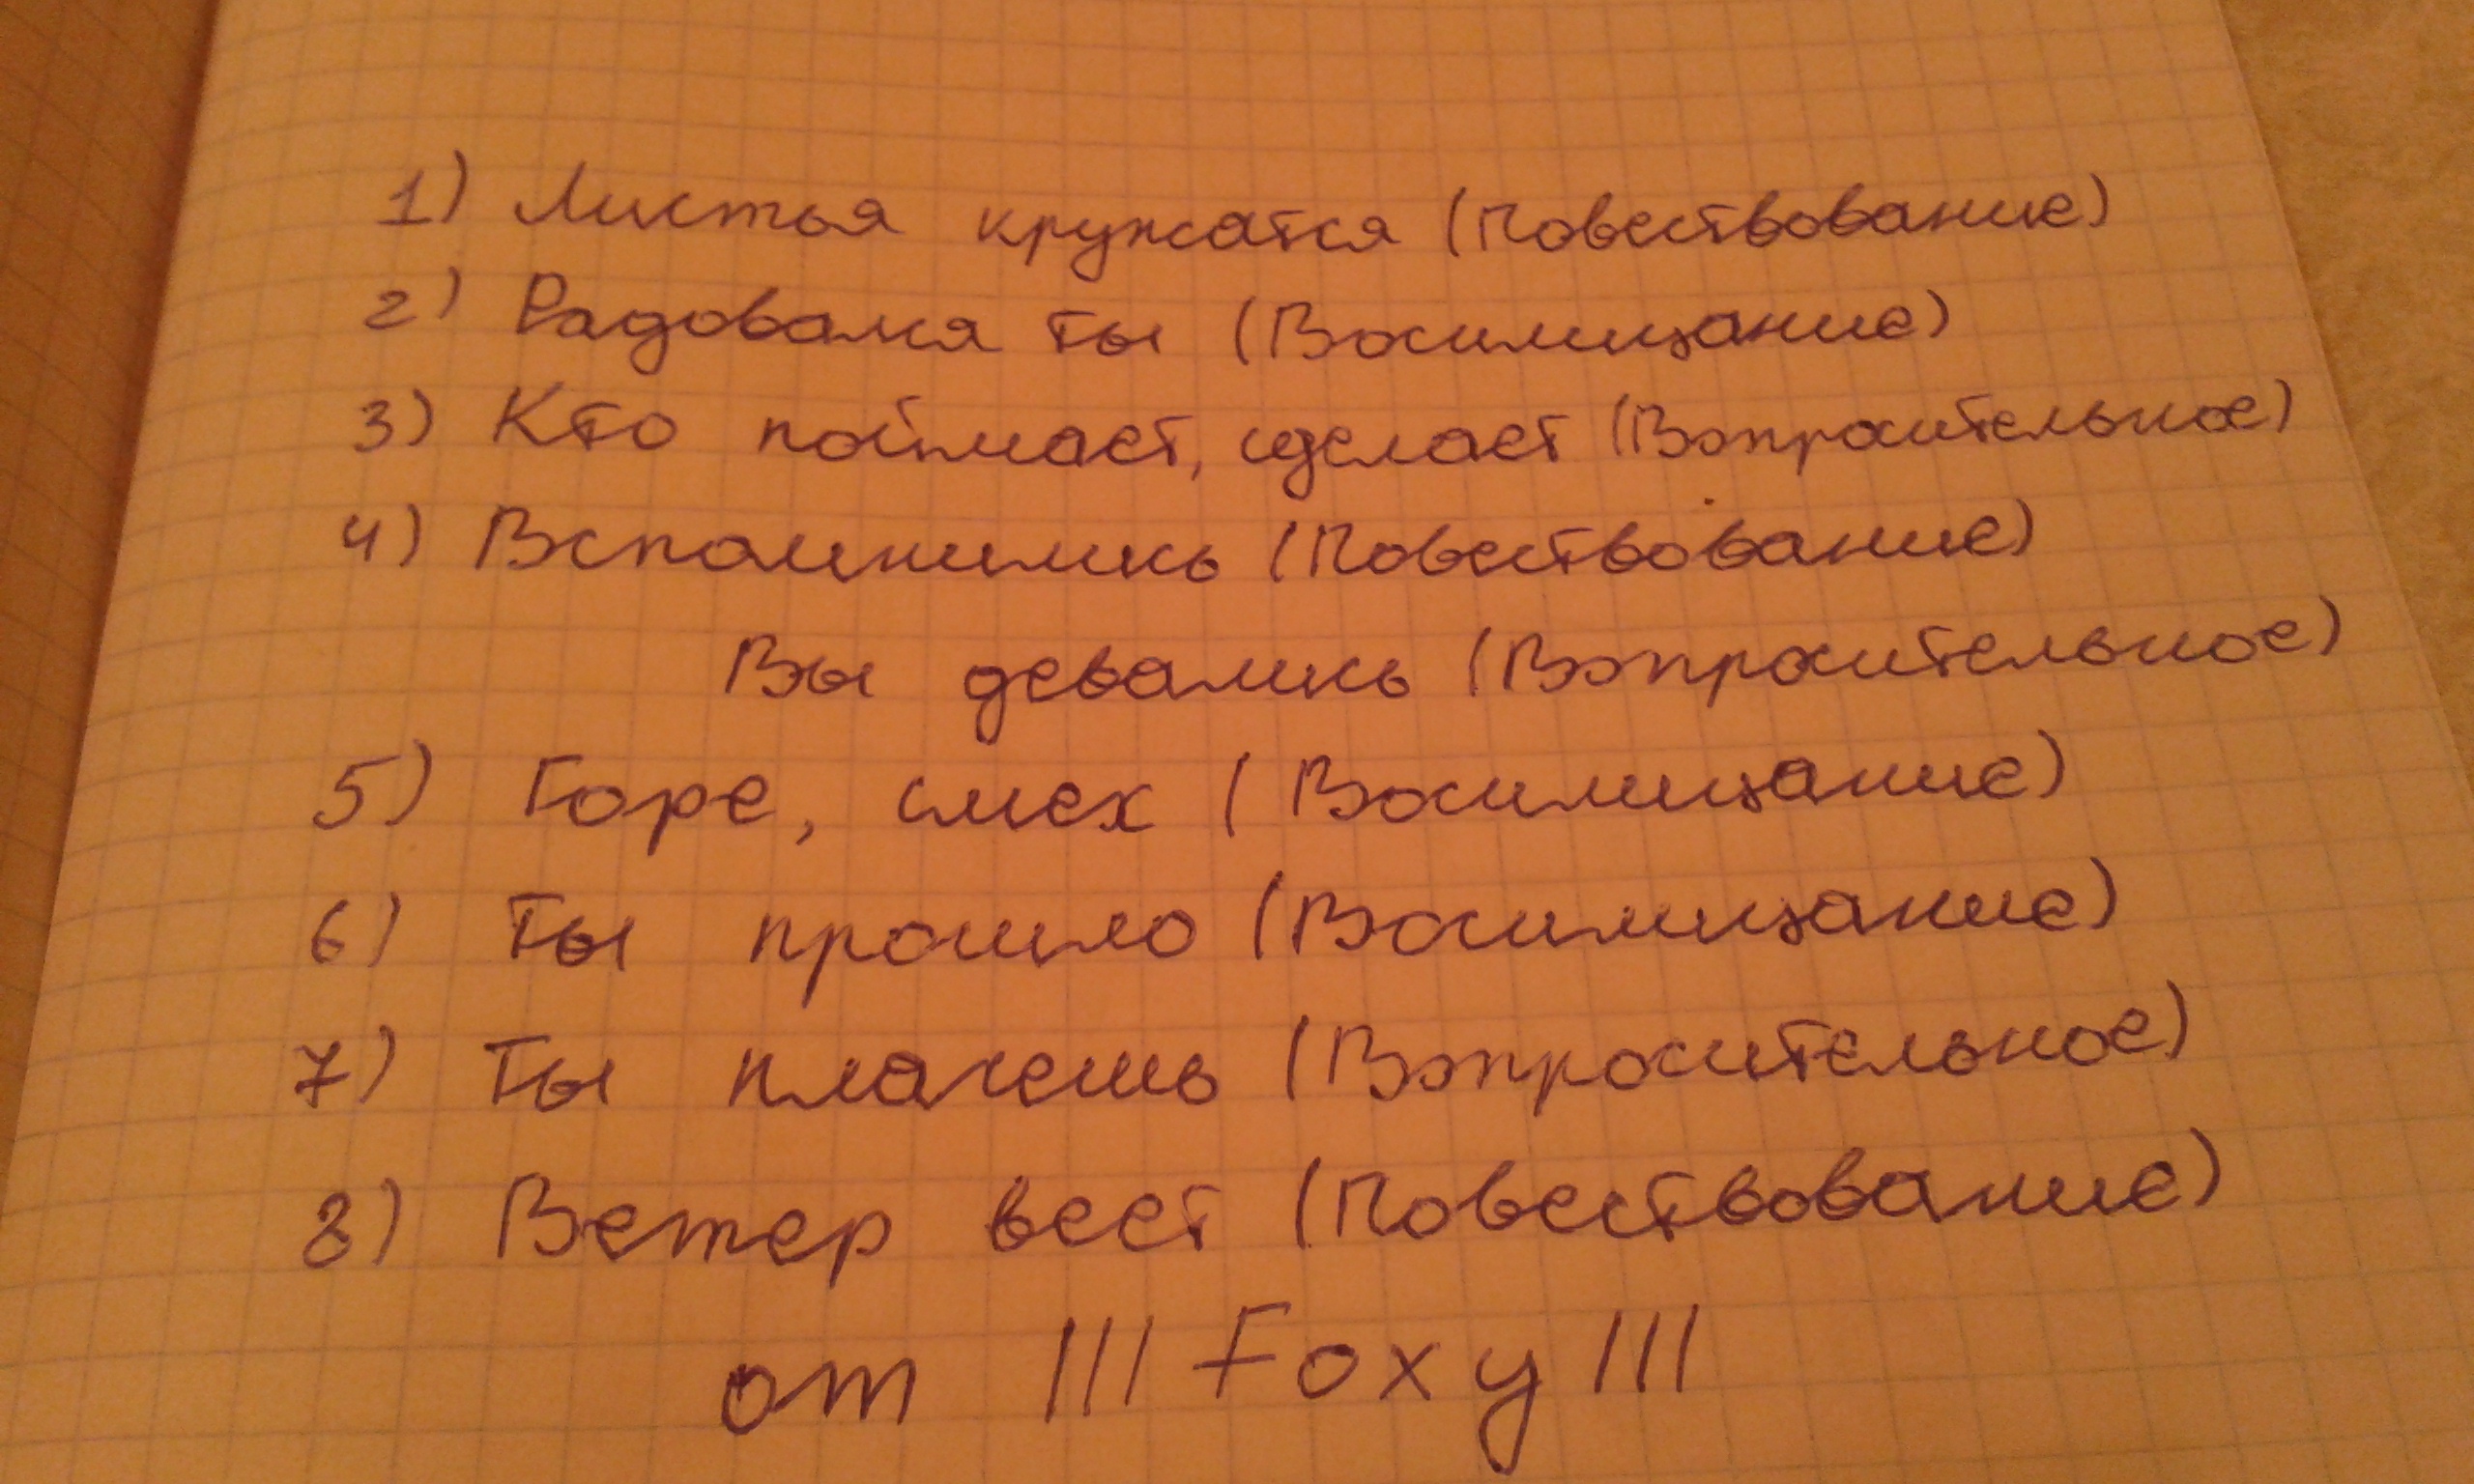 1) Листья кружатся (Повествование)
2) Радовался ты (Восклицание)
3) Кто поймает, сделает (Вопросительное)
4) Вспомнились (Повествование)
Вы девались (Вопросительное)
5) Горе, смех (Восклицание)
6) Ты прошло (Восклицание)
7) Ты плачешь (Вопросительное)
8) Ветер веет (Повествование)
от ||| Foxy |||